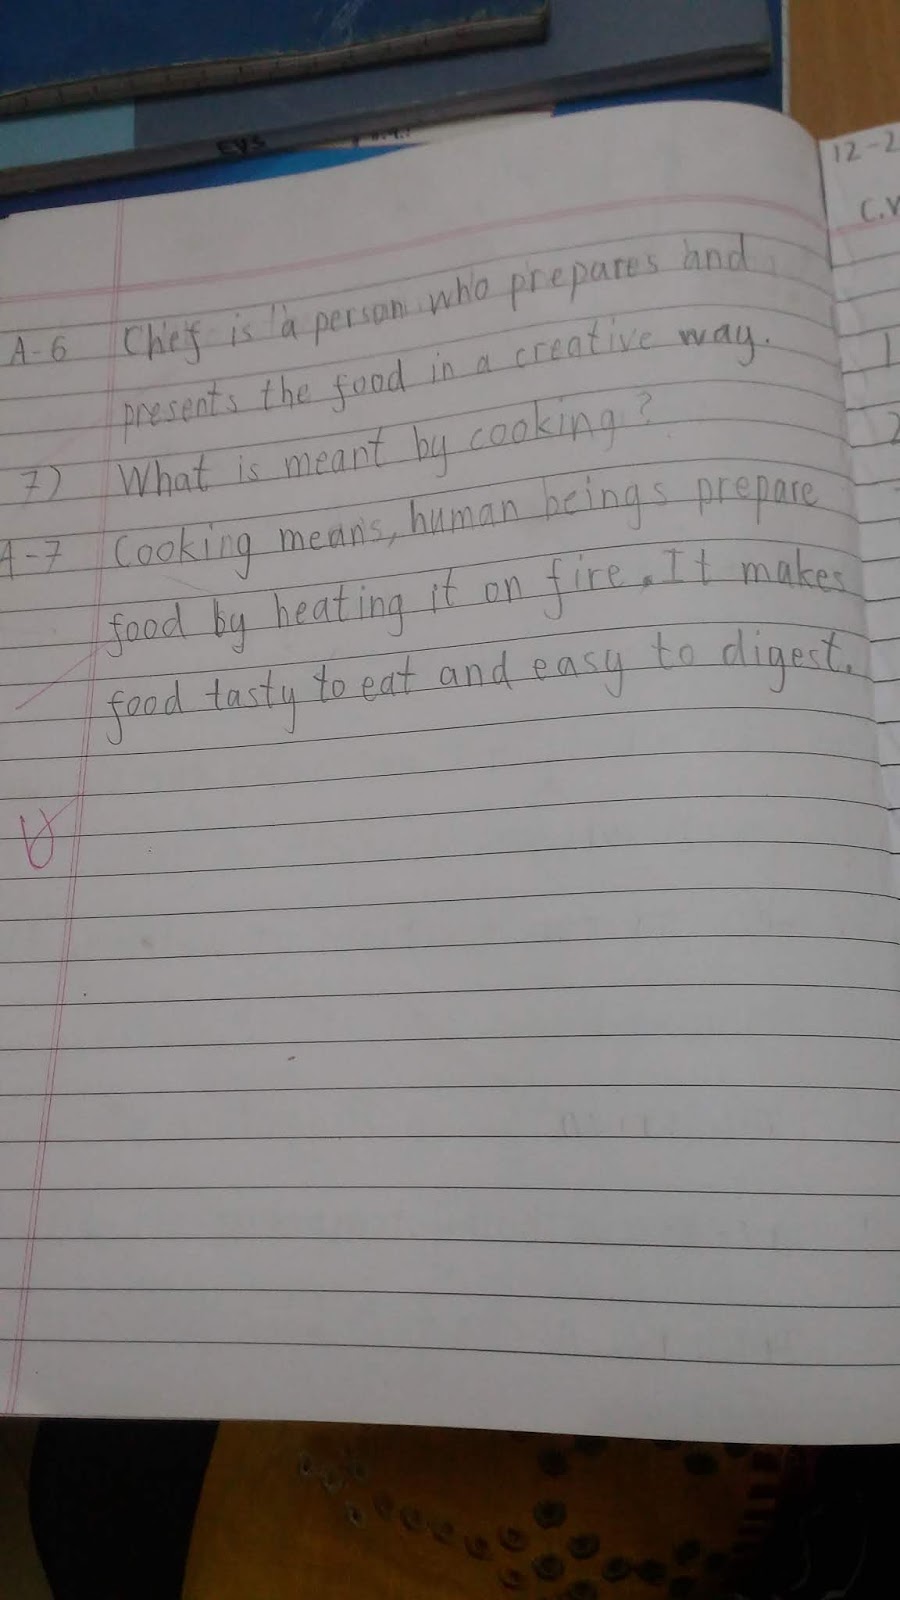 EVS
12-2
C.W
A-6 Chef is a person who prepares and
presents the food in a creative way.
7) What is meant by cooking?
A-7 Cooking means, human beings prepare
food by heating it on fire. It makes
food tasty to eat and easy to digest.
1
2